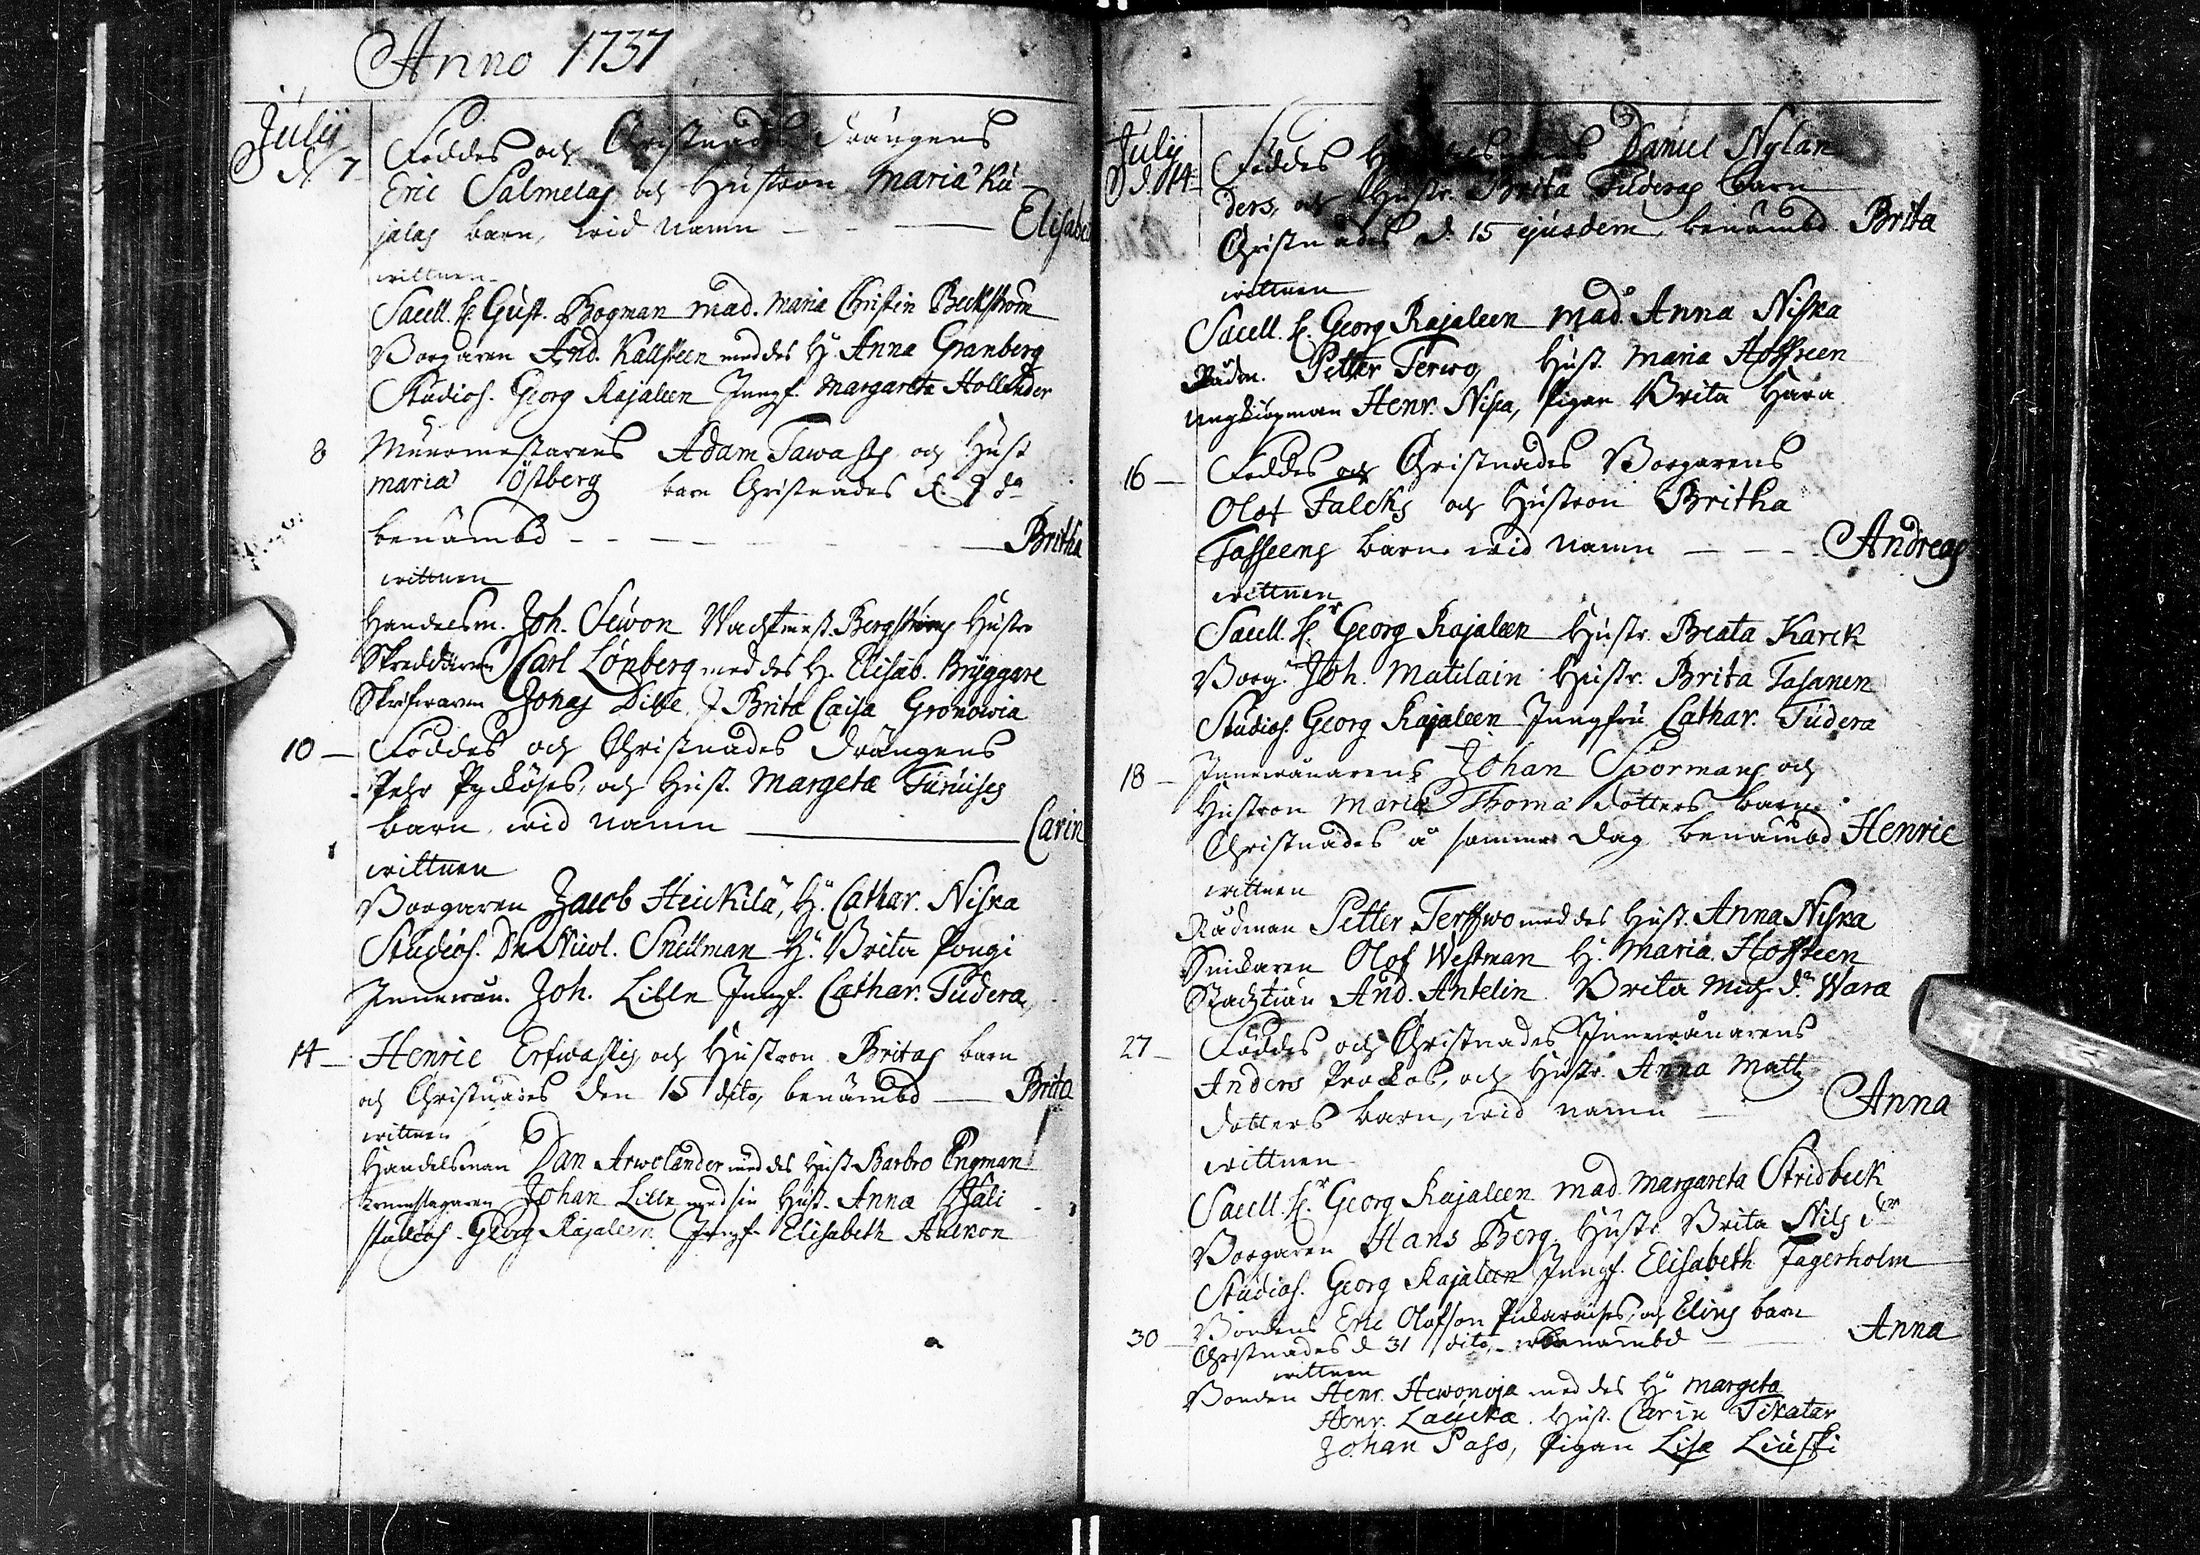 Anno 1737
Julij
d. 7
Föddes och Christnades Drängens
Eric Salmelas och Hustron Maria Ku-
jalas barn, wid namn - - - Elisabe
wittnen
Sacell. H. Gust. Bogman Mad. Maria Christin Beckström
Borgaren And. Kallsteen med des H. Anna Granberg
Studios. Georg Kajaleen Jungf. Margareta Hollender
8 Muurmestarens Adam Tawasts och Hust
Maria Östberg barn Christnades d. 9 do
benämbd - - - Britha
wittnen
Handelsm. Joh. Sewon Wachtmest. Bergströms Hustro
Skreddaren Carl Lönberg med des H. Elisab. Bryggare
Jonas J. Brita Caisa Gronowia
10 Föddes och Christnades Drängens
Pehr och Hust. Margeta
barn wid namn Carin
wittnen
Borgaren Jacob Heickilä, H. Cathar. Niska
Studios. Dn Nicol. Snellman H. Brita Pongi
Joh. Lille Jungf. Cathar. Tudera
14 Henric och Hustron Britas barn
och Christnades den 15 dito, benämbd Brita
wittnen
Handelsman Dan Arwolander med des Hust Barbro Engman
Johan Lille med sin Hust. Anna
studios. Georg Kajaleen Jungf. Elisabeth
Julij
d. 14
Föddes Daniel Nylan
ders, och Hustr. Brita Tuderas barn
Christnades d. 15 ejusdem, benämbd Brita
wittnen
Sacell. H. Georg Kajaleen Mad. Anna Niska
Rådm. Petter Terwo, Hust. Maria Hoffreen
Henr. Nisca, Pigan Brita Hara
16 Föddes och Christnades Borgarens
Olof Falcks och Hustron Britha
Tasseens barn wid namn - - - Andreas
wittnen
Sacell. Hr Georg Kajaleen Hustr. Beata Karck
Borg. Joh. Matilain Hustr. Brita Tasanen
Studios. Georg Kajaleen Jungfru Cathar. Tudera
18 Johan Spormans och
Hustron Maria Thomæ dotters barn
Christnades å samma dag benämbd Henric
wittnen
Rådman Petter Terffwo med des Hust. Anna Niska
Snickaren Olof Westman H. Maria Hoffreen
And. Antelin Brita Mich. dr Wara
27 Föddes, och Christnades
Anders och Hustr. Anna Matts
dotters barn, wid namn Anna
wittnen
Sacell. Hr Georg Kajaleen Mad Margareta Stridbeck
Borgaren Hans Berg Hustr. Brita Nils dr
Studios. Georg Kajaleen Jungf. Elisabeth Fagerholm
30 Bondens Eric Olofson och Elins barn
Christnades d 31 dito, benämbd Anna
wittnen
Bonden Henr. Hewonoja med des Hu Margeta
Henr. Laucka. Hust. Carin Tikatar
Johan Paso, Pigan Lisa Liuski